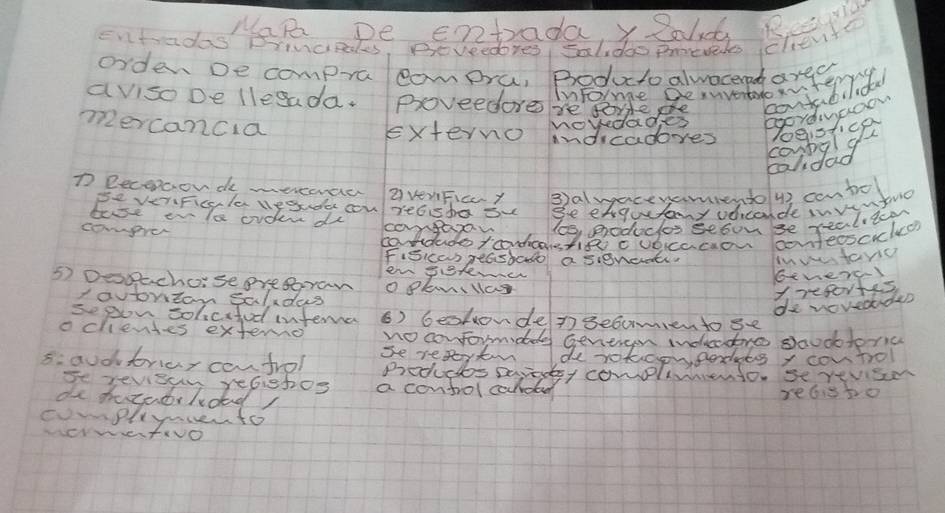 MaPa De entrada y Salida
Entradas Principales Proveedores Salidas cliente
orden De compra compra, Producto almacenad area
aviso De llegada. Proveedore Informe De inventario interna
mercancia Externo re porte de contabilidad
novedades coordinacion
indicadores logistica
calidad
1) Recepcion de mercancia
se verifica la llegada con
base en la orden de
compra
2) verificar y
registro se
comparan
cantidades y condiciones
Fisicas registrado
en sistema
o planillas
3) almacenamiento
se etiquetan y udican
los productos segun
tipo o ubicacion
asignada.
4) control
de inventario
se realizan
conteos ciclicos
inventario
General
y reportes
de novedades
5) Despacho: se preparan
y autorizan salidas
segun solicitud interna
o clientes externo
6) Gestion de
no conformidades
se reportan
productos
a control calidad
7) segumiento se
Generan indicadores
de rotacion, perdidas
y complimiento.
8) audotoria
y control
se revisan
registro
8: auditoria y control
se revisan registros
de trazabilidad /
cumplimiento
normativo